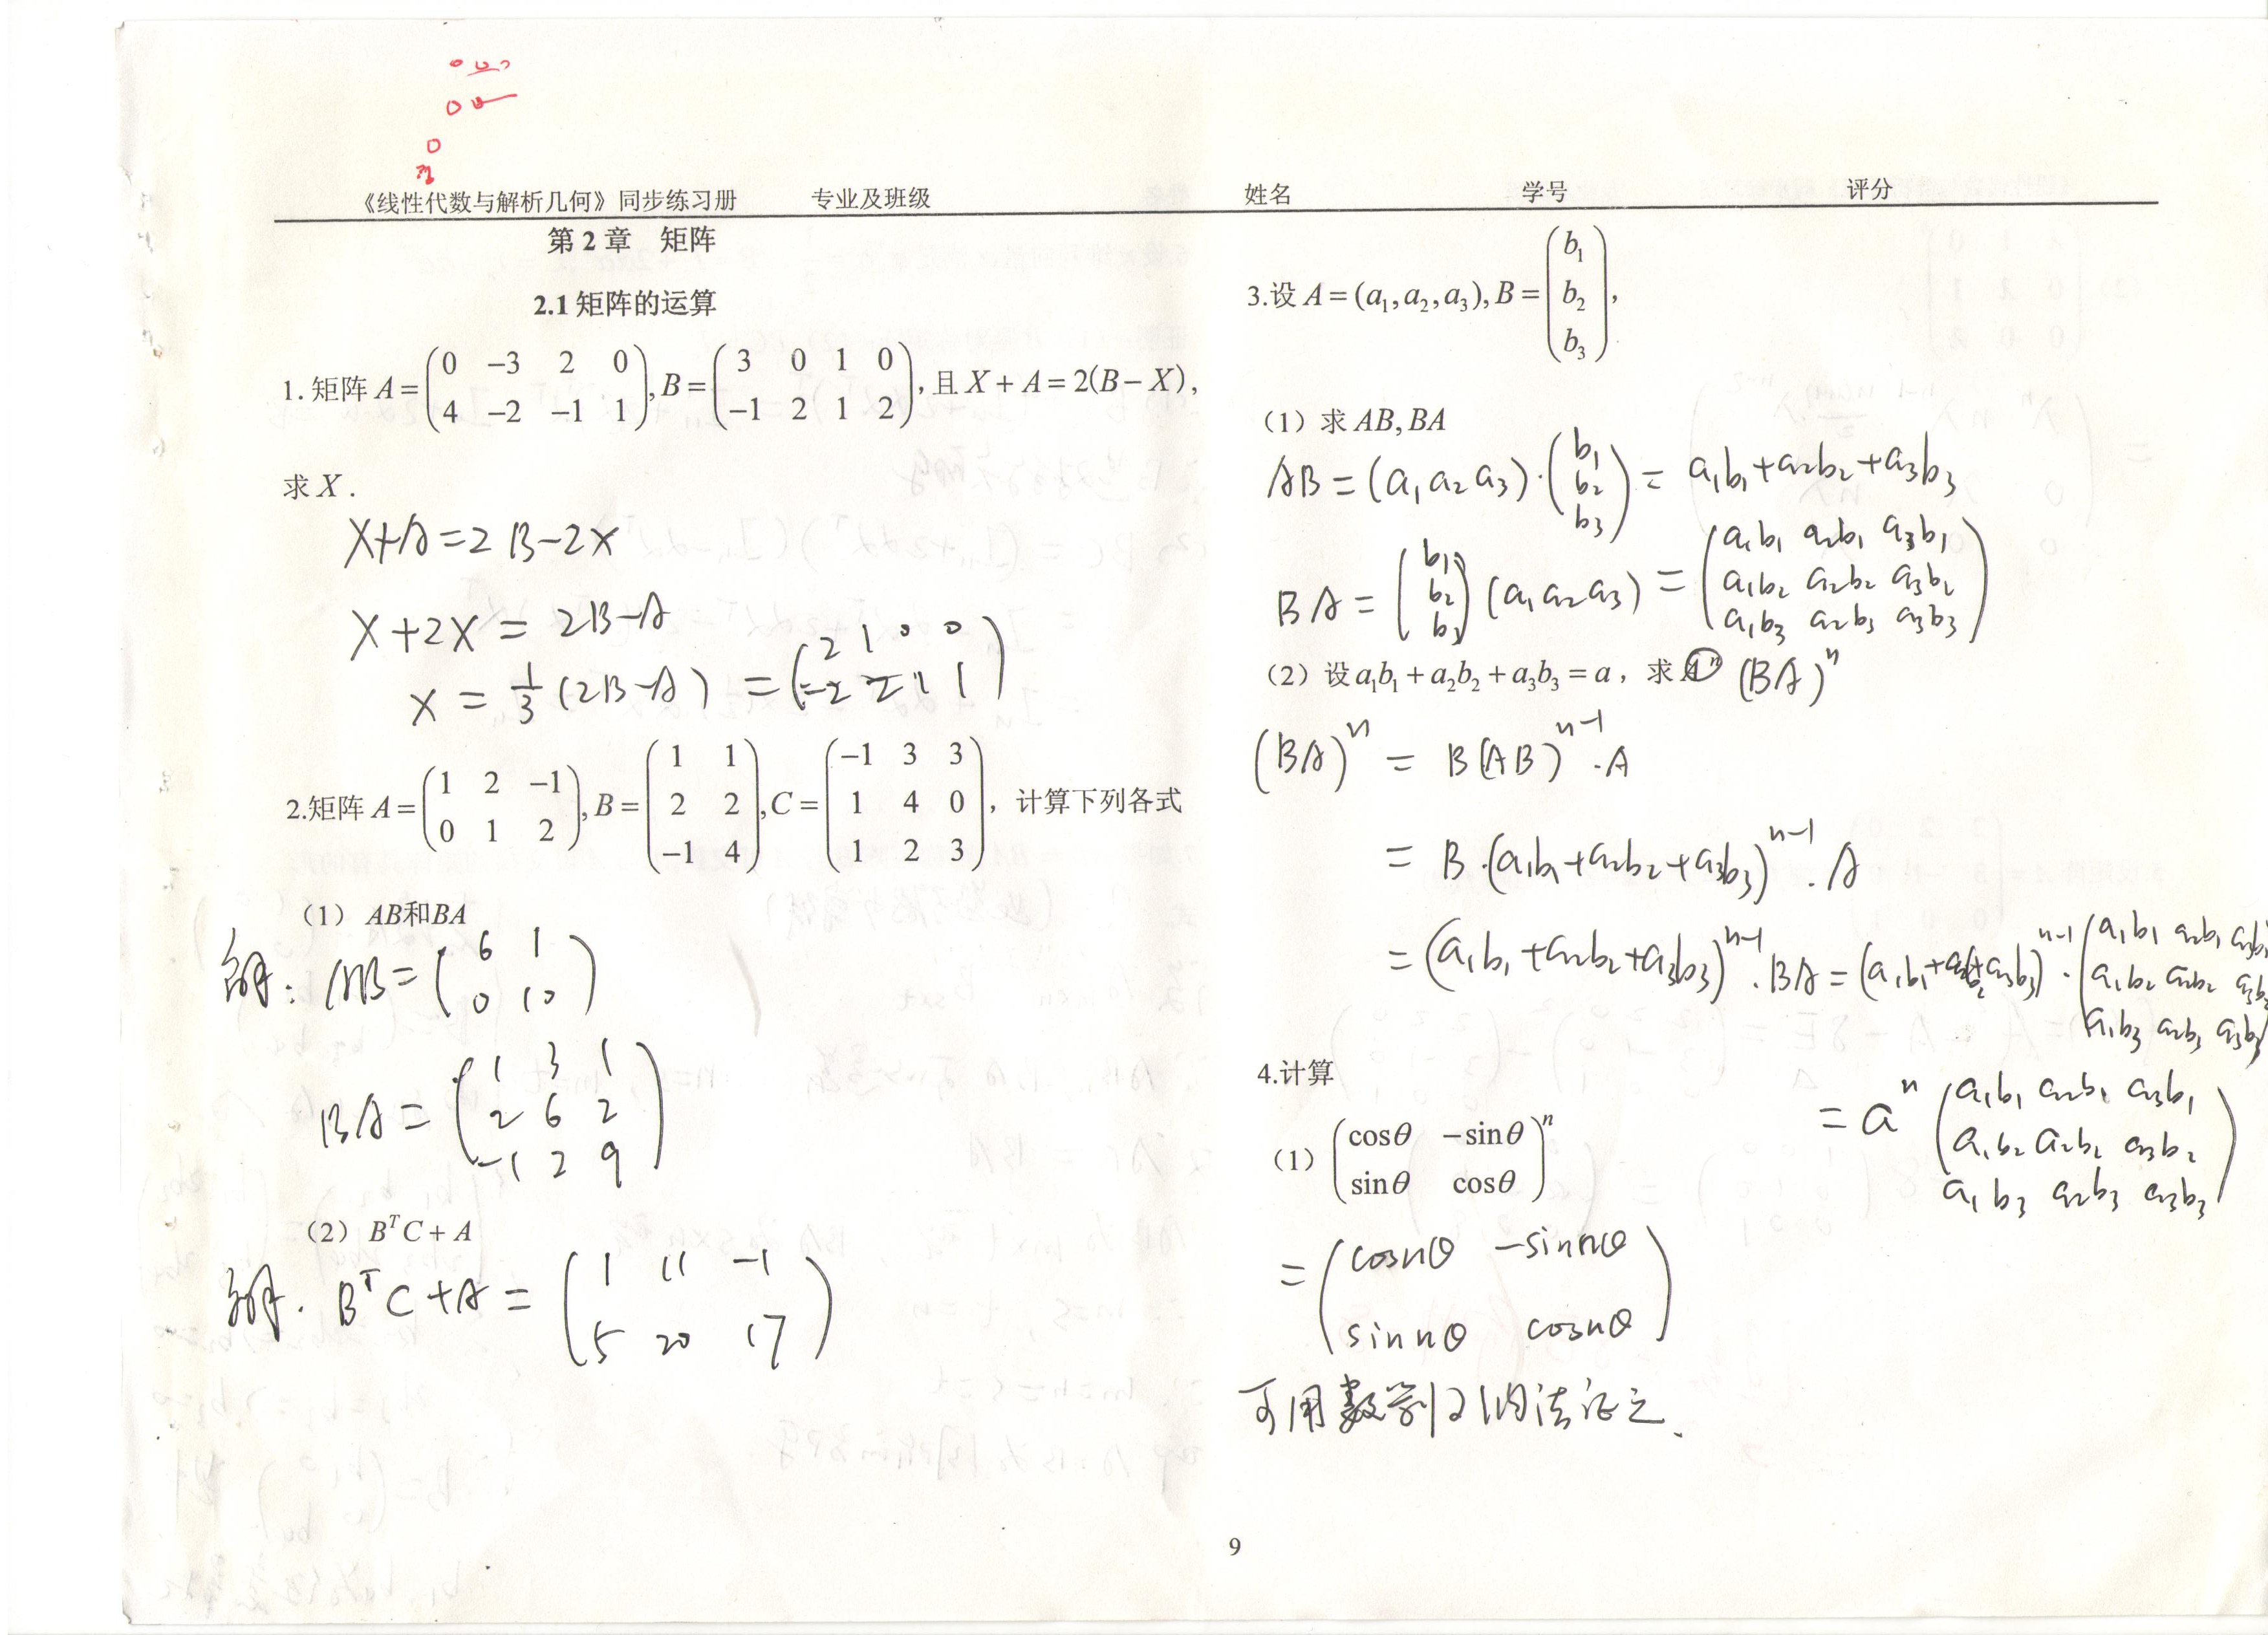 《线性代数与解析几何》同步练习册 专业及班级 姓名 学号 评分
第 2 章 矩阵
2.1 矩阵的运算
1. 矩阵 A = (0 −3 2 0; 4 −2 −1 1), B = (3 0 1 0; −1 2 1 2), 且 X + A = 2(B − X),
求 X .
X+A=2B−2X
X+2X = 2B−A
X = 1/3 (2B−A) = (2 1 0 0; −2 2 1 1)
2.矩阵 A = (1 2 −1; 0 1 2), B = (1 1; 2 2; −1 4), C = (−1 3 3; 1 4 0; 1 2 3), 计算下列各式
（1） AB和BA
解: AB = (6 1; 0 10)
BA = (1 3 1; 2 6 2; −1 2 9)
（2） B^T C + A
解. B^T C + A = (1 11 −1; 5 20 17)
3.设 A = (a₁, a₂, a₃), B = (b₁; b₂; b₃),
（1）求 AB, BA
AB = (a₁ a₂ a₃) · (b₁; b₂; b₃) = a₁b₁+a₂b₂+a₃b₃
BA = (b₁; b₂; b₃) (a₁ a₂ a₃) = (a₁b₁ a₂b₁ a₃b₁; a₁b₂ a₂b₂ a₃b₂; a₁b₃ a₂b₃ a₃b₃)
（2）设 a₁b₁ + a₂b₂ + a₃b₃ = a，求 Aⁿ (BA)ⁿ
(BA)ⁿ = B(AB)ⁿ⁻¹ · A
= B · (a₁b₁+a₂b₂+a₃b₃)ⁿ⁻¹ · A
= (a₁b₁+a₂b₂+a₃b₃)ⁿ⁻¹ · BA = (a₁b₁+a₂b₂+a₃b₃)ⁿ⁻¹ · (a₁b₁ a₂b₁ a₃b₁; a₁b₂ a₂b₂ a₃b₂; a₁b₃ a₂b₃ a₃b₃)
= aⁿ (a₁b₁ a₂b₁ a₃b₁; a₁b₂ a₂b₂ a₃b₂; a₁b₃ a₂b₃ a₃b₃)
4.计算
（1） (cosθ −sinθ; sinθ cosθ)ⁿ
= (cosnθ −sinnθ; sinnθ cosnθ)
可用数学归纳法证之.
9